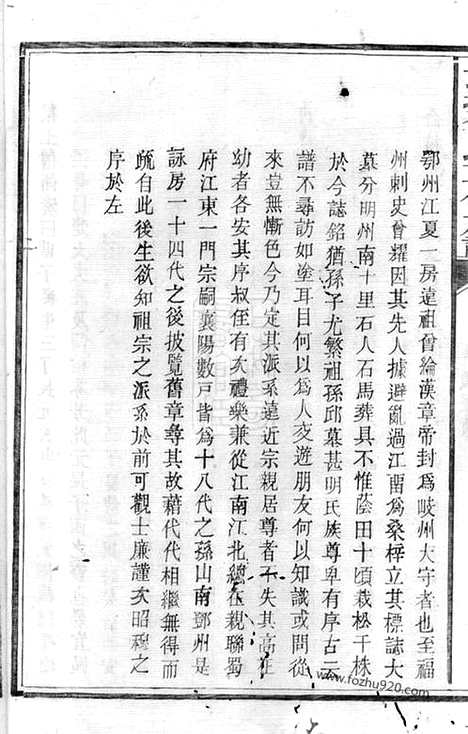 鄂州江夏一房遠祖曾綸漢章帝封爲岐州大守者也至福
州刺史曾耀因其先人據避亂過江畱爲桑梓立其標誌大
墓分明州南十里石人石馬葬具不惟蔭田十頃栽松千株
於今誌銘猶孫子尤繁祖孫邱墓甚明氏族尊卑有序古云
譜不尋訪如塗耳目何以爲人交遊朋友何以知識或問從
來豈無慚色今乃定其派系遠近宗親居尊者不失其高在
幼者各安其序叔侄有次禮樂兼從江南江北總在親聯蜀
府江東一門宗嗣襄陽數戸皆爲十八代之孫山南鄧州是
詠房一十四代之後披覽舊章尋其故藉代代相繼無得而
䟽自此後生欲知祖宗之派系於前可觀士廉謹次昭穆之
序於左
www.fozhu920.com